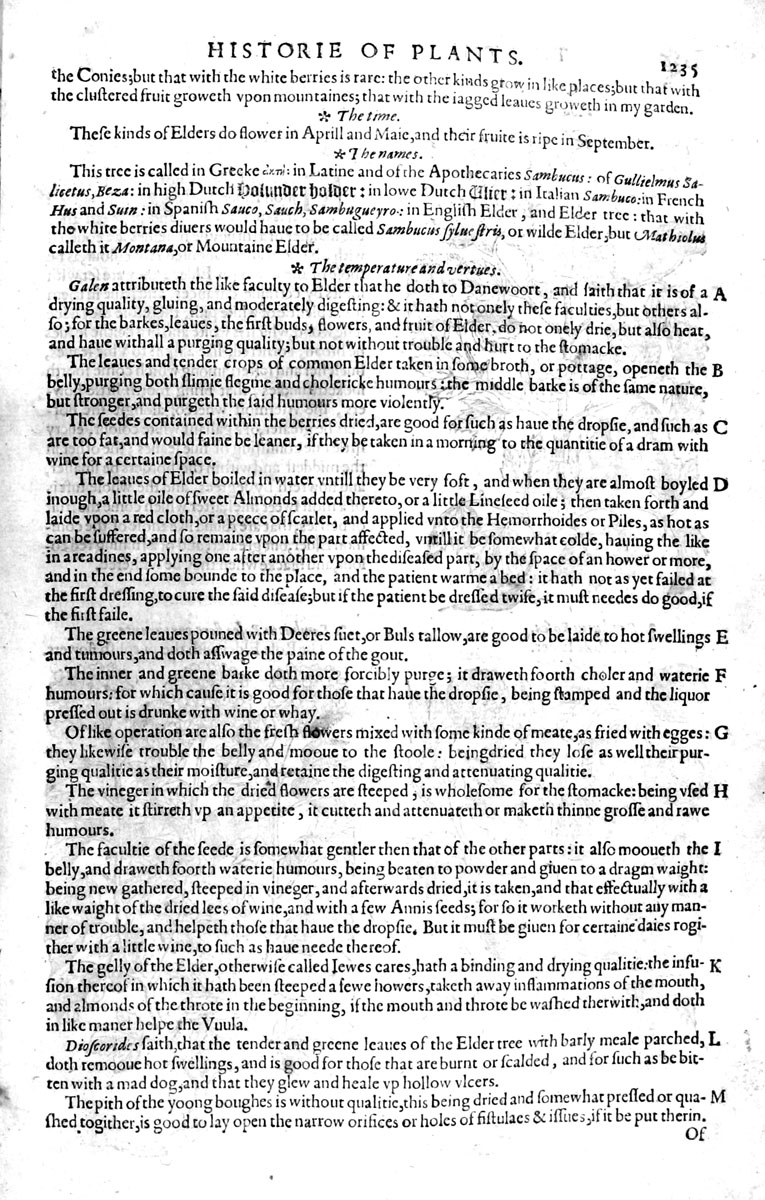 HISTORIE OF PLANTS. 1235
the Conies; but that with the white berries is rare: the other kinds grow in like places; but that with
the cluſtered fruit groweth vpon mountaines; that with the iagged leaues groweth in my garden.
* The time.
Theſe kinds of Elders do flower in Aprill and Maie, and their fruite is ripe in September.
* The names.
This tree is called in Greeke ἀκτὴ: in Latine and of the Apothecaries Sambucus: of Gullielmus Sa-
licetus, Beza: in high Dutch Holunder holder: in lowe Dutch Ulier: in Italian Sambuco: in French
Hus and Suin: in Spaniſh Sauco, Sauch, Sambugueyro: in Engliſh Elder, and Elder tree: that with
the white berries diuers would haue to be called Sambucus ſylueſtris, or wilde Elder, but Mathiolus
calleth it Montana, or Mountaine Elder.
* The temperature and vertues.
Galen attributeth the like faculty to Elder that he doth to Danewoort, and ſaith that it is of a A
drying quality, gluing, and moderately digeſting: & it hath not onely theſe faculties, but others al-
ſo; for the barkes, leaues, the firſt buds, flowers, and fruit of Elder, do not onely drie, but alſo heat,
and haue withall a purging quality; but not without trouble and hurt to the ſtomacke.
The leaues and tender crops of common Elder taken in ſome broth, or pottage, openeth the B
belly, purging both ſlimie flegme and cholericke humours: the middle barke is of the ſame nature,
but ſtronger, and purgeth the ſaid humours more violently.
The ſeedes contained within the berries dried, are good for ſuch as haue the dropſie, and ſuch as C
are too fat, and would faine be leaner, if they be taken in a morning to the quantitie of a dram with
wine for a certaine ſpace.
The leaues of Elder boiled in water vntill they be very ſoft, and when they are almoſt boyled D
inough, a little oile of ſweet Almonds added thereto, or a little Lineſeed oile; then taken forth and
laide vpon a red cloth, or a peece of ſcarlet, and applied vnto the Hemorrhoides or Piles, as hot as
can be ſuffered, and ſo remaine vpon the part affected, vntill it be ſomewhat colde, hauing the like
in a readines, applying one after another vpon the diſeaſed part, by the ſpace of an hower or more,
and in the end ſome bounde to the place, and the patient warme a bed: it hath not as yet failed at
the firſt dreſſing, to cure the ſaid diſeaſe; but if the patient be dreſſed twiſe, it muſt needes do good, if
the firſt faile.
The greene leaues pouned with Deeres ſuet, or Buls tallow, are good to be laide to hot ſwellings E
and tumours, and doth aſſwage the paine of the gout.
The inner and greene barke doth more forcibly purge; it draweth foorth choler and waterie F
humours: for which cauſe it is good for thoſe that haue the dropſie, being ſtamped and the liquor
preſſed out is drunke with wine or whay.
Of like operation are alſo the freſh flowers mixed with ſome kinde of meate, as fried with egges: G
they likewiſe trouble the belly and mooue to the ſtoole: being dried they loſe as well their pur-
ging qualitie as their moiſture, and retaine the digeſting and attenuating qualitie.
The vineger in which the dried flowers are ſteeped, is wholeſome for the ſtomacke: being vſed H
with meate it ſtirreth vp an appetite, it cutteth and attenuateth or maketh thinne groſſe and rawe
humours.
The facultie of the ſeede is ſomewhat gentler then that of the other parts: it alſo mooueth the I
belly, and draweth foorth waterie humours, being beaten to powder and giuen to a dragm waight:
being new gathered, ſteeped in vineger, and afterwards dried, it is taken, and that effectually with a
like waight of the dried lees of wine, and with a few Annis ſeeds; for ſo it worketh without any man-
ner of trouble, and helpeth thoſe that haue the dropſie. But it muſt be giuen for certaine daies togi-
ther with a little wine, to ſuch as haue neede thereof.
The gelly of the Elder, otherwiſe called Iewes eares, hath a binding and drying qualitie: the infu- K
ſion thereof in which it hath been ſteeped a fewe howers, taketh away inflammations of the mouth,
and almonds of the throte in the beginning, if the mouth and throte be waſhed therwith, and doth
in like maner helpe the Vuula.
Dioſcorides ſaith, that the tender and greene leaues of the Elder tree with barly meale parched, L
doth remooue hot ſwellings, and is good for thoſe that are burnt or ſcalded, and for ſuch as be bit-
ten with a mad dog, and that they glew and heale vp hollow vlcers.
The pith of the yoong boughes is without qualitie, this being dried and ſomewhat preſſed or qua- M
ſhed togither, is good to lay open the narrow orifices or holes of fiſtulaes & iſſues, if it be put therin.
Of